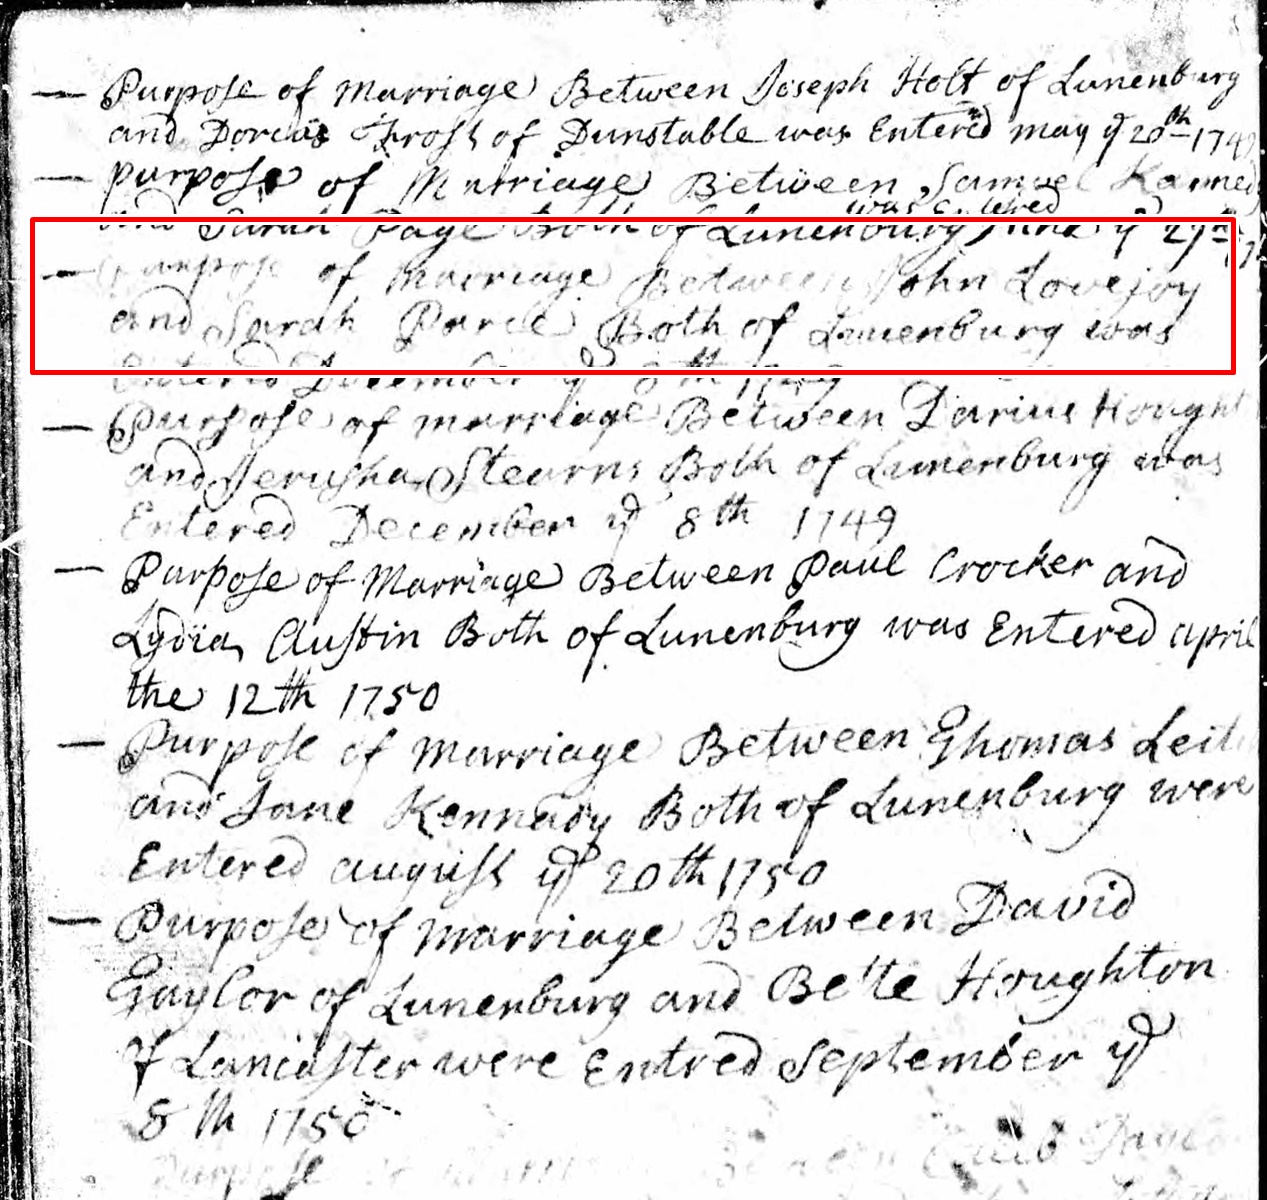 — Purpose of Marriage Between Joseph Holt of Lunenburg
and Dorcas Frost of Dunstable was Entered may ye 20th 174
— purpose of Marriage Between Samuel Kenned
and Sarah Page Both of Lunenburg was Entered June ye 29th
— Purpose of Marriage Between John Lovejoy
and Sarah Both of Lunenburg was
Entered December ye 8th 1749
— Purpose of marriage Between Darius Hought
and Jerusha Stearns Both of Lunenburg was
Entered December ye 8th 1749
— Purpose of Marriage Between Paul Crocker and
Lydia Austin Both of Lunenburg was Entered april
the 12th 1750
— Purpose of Marriage Between Thomas Leit
and Jane Kennady Both of Lunenburg were
Entered august ye 20th 1750
— Purpose of Marriage Between David
Taylor of Lunenburg and Bette Houghton
of Lancaster were Entred September ye
8th 1750
Purpose